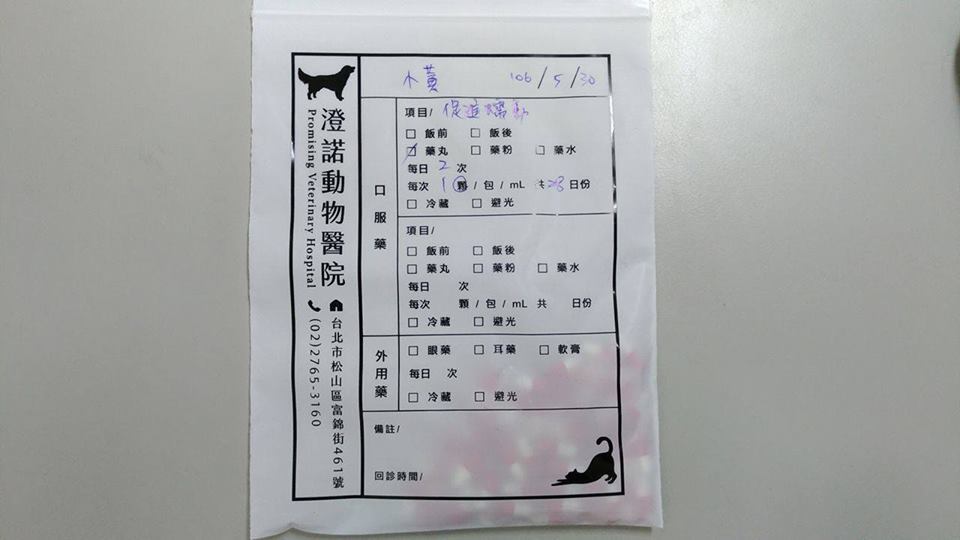 澄諾動物醫院
Promising Veterinary Hospital
台北市松山區富錦街461號
(02)2765-3160
小黃 106/5/30
口服藥
項目/ 促進蠕動
□ 飯前 □ 飯後
☑ 藥丸 □ 藥粉 □ 藥水
每日 2 次
每次 1 顆 / 包 / mL 共 28 日份
□ 冷藏 □ 避光
項目/
□ 飯前 □ 飯後
□ 藥丸 □ 藥粉 □ 藥水
每日 次
每次 顆 / 包 / mL 共 日份
□ 冷藏 □ 避光
外用藥
□ 眼藥 □ 耳藥 □ 軟膏
每日 次
□ 冷藏 □ 避光
備註/
回診時間/